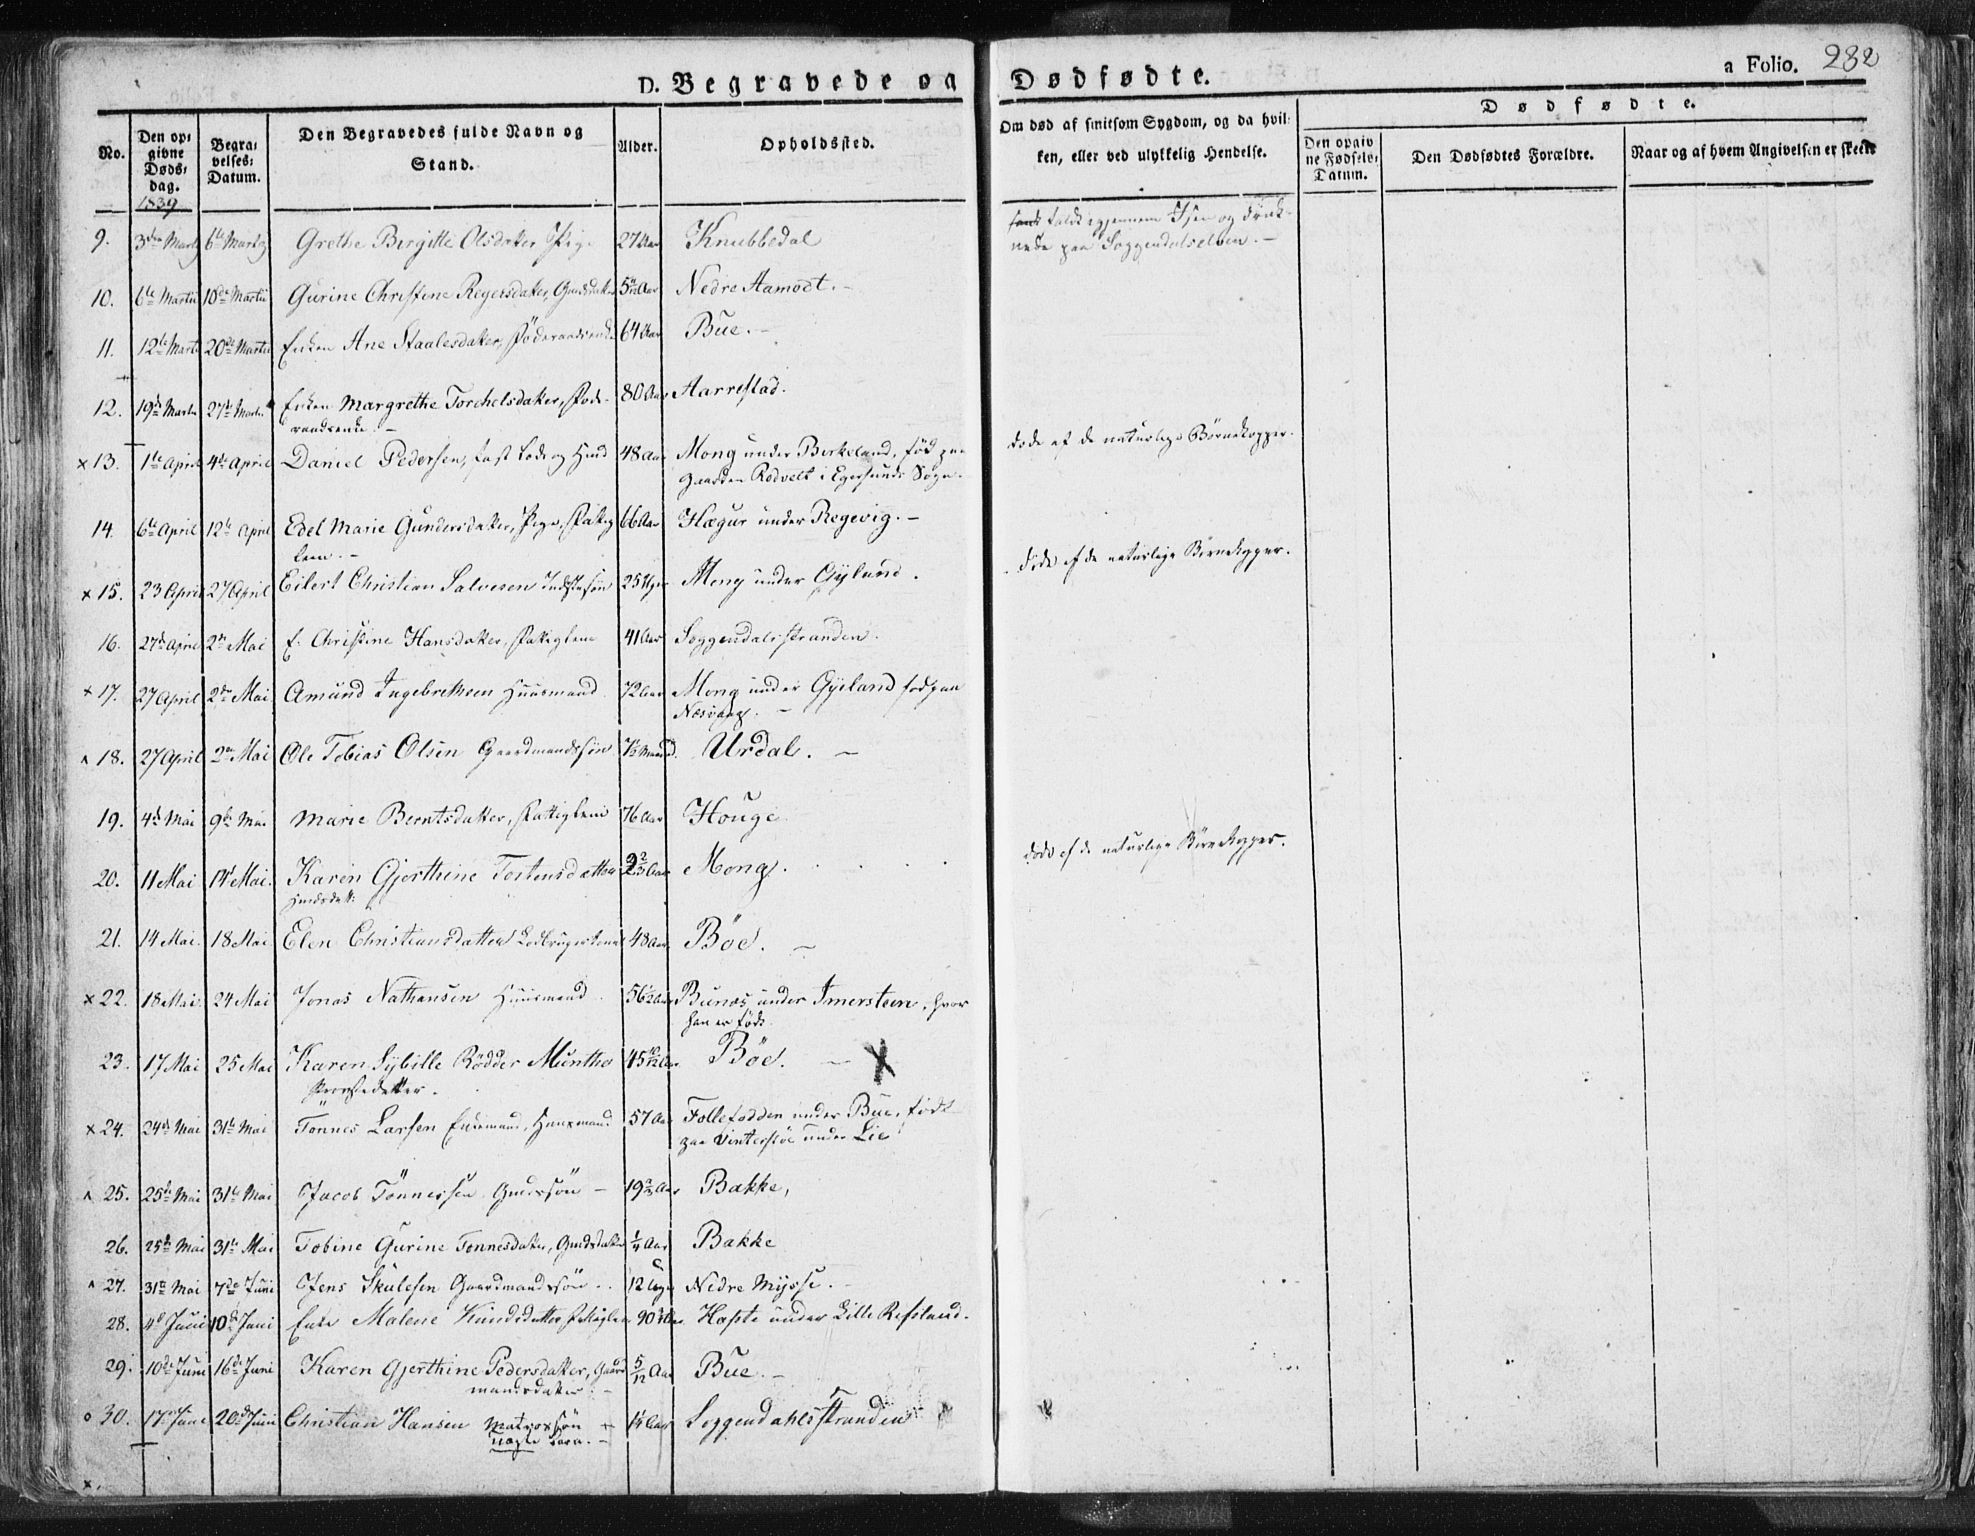 D. Begravede og Dødfødte.
a Folio. 232
No. Den opgivne Døds-dag. Begravelses-Datum. Den Begravedes fulde Navn og Stand. Alder. Opholdssted. Om død af smitsom Sygdom, og da hvilken, eller ved ulykkelig Hendelse. Dødfødte. Den opgivne Fødsels-Datum. Den Dødfødtes Forældre. Naar og af hvem Angivelsen er skeet
1839
9. 3die Marts 6te Marts Grethe Birgitte Olsdatter Pige 27 Aar Knubbedal faldt igjennem Isen og druknede paa Soggendalselven. -
10. 6te Martii 10de Martii Gurine Christine Regersdatter, 5 Aar Nedre Aamodt. -
11. 12te Marti 20de Martii Enken Ane Staalesdatter, 64 Aar Bue. -
12. 19de Marti 27de Marti Enken Margrethe Torchelsdatter, Føderaadsenke. - 80 Aar Aarrestad.
x 13. 1te April 4de April Daniel Pedersen, 48 Aar Mong under Birkeland, fød paa Gaarden Rodvelt i Egersunds Sogn. - døde af de naturlige Børnekopper.
14. 6te April 12te April Edel Marie Gundersdatter, Pige, Fattiglem. - 66 Aar Hægur under Regevig. -
x 15. 23 April 27 April Eilert Christian Salvesen Indstesøn 25 Uger Mong under Gyland. døde af de naturlige Børnekopper.
16. 27de April 2den Mai E. Christine Hansdatter, Fattiglem 41 Aar Soggendalsstranden.
x 17. 27 April 2den Mai Amund Ingebretsen Huusmand 72 Aar Mong under Gyeland fød paa Nesvaag. -
18. 27 April 2den Mai Ole Tobias Olsen Gaardmandssøn Maaned. Urdal. -
19. 4de Mai 9de Mai Marie Berntsdatter, Fattiglem 76 Aar Houge
20. 11 Mai 14 Mai. Karen Gjerthine Tostensdatter 2 2/3 Aar Mong. døde af de naturlige Børnekopper.
21. 14 Mai. 18 Mai Elen Christiansdatter Lodbrugerkone 48 Aar Böe. -
x 22. 18 Mai. 24 Mai Jonas Nathansen Huusmand 56 1/2 Aar Bunæs under Imersteen, hvor han er født.
23. 17 Mai 25 Mai Karen Sybille Rødder Munthe Provstedatter. 45 10/12 Aar Böe. - X
x 24. 24de Mai 31te Mai Tönnes Larsen Enkemand, Huusmand 57 Aar Follefodden under Bue, født paa Vinterstöe under Lie
25. 25de Mai 31te Mai Jacob Tönnessen - 19 2/3 Aar Bakke,
26. 25de Mai 31te Mai Tobine Gurine Tonnesdatter, 1/4 Aar Bakke
27. 31te Mai 7de Juni Jens Skulesen Gaardmandssøn - 12 Uger Nedre Mysse. -
28. 4de Juni 10de Juni Enke Malene Knudsdatter Fattiglem 90 Aar Hafte under Lille Refsland.
29. 10de Juni 16de Juni Karen Gjerthine Pedersdatter, Gaardmandsdatter. - 5/12 Aar Bue. -
o 30. 17de Juni 20de Juni Christian Hansen Matrossøn uægte Barn. - 1/4 Aar Soggendahlsstranden
x.